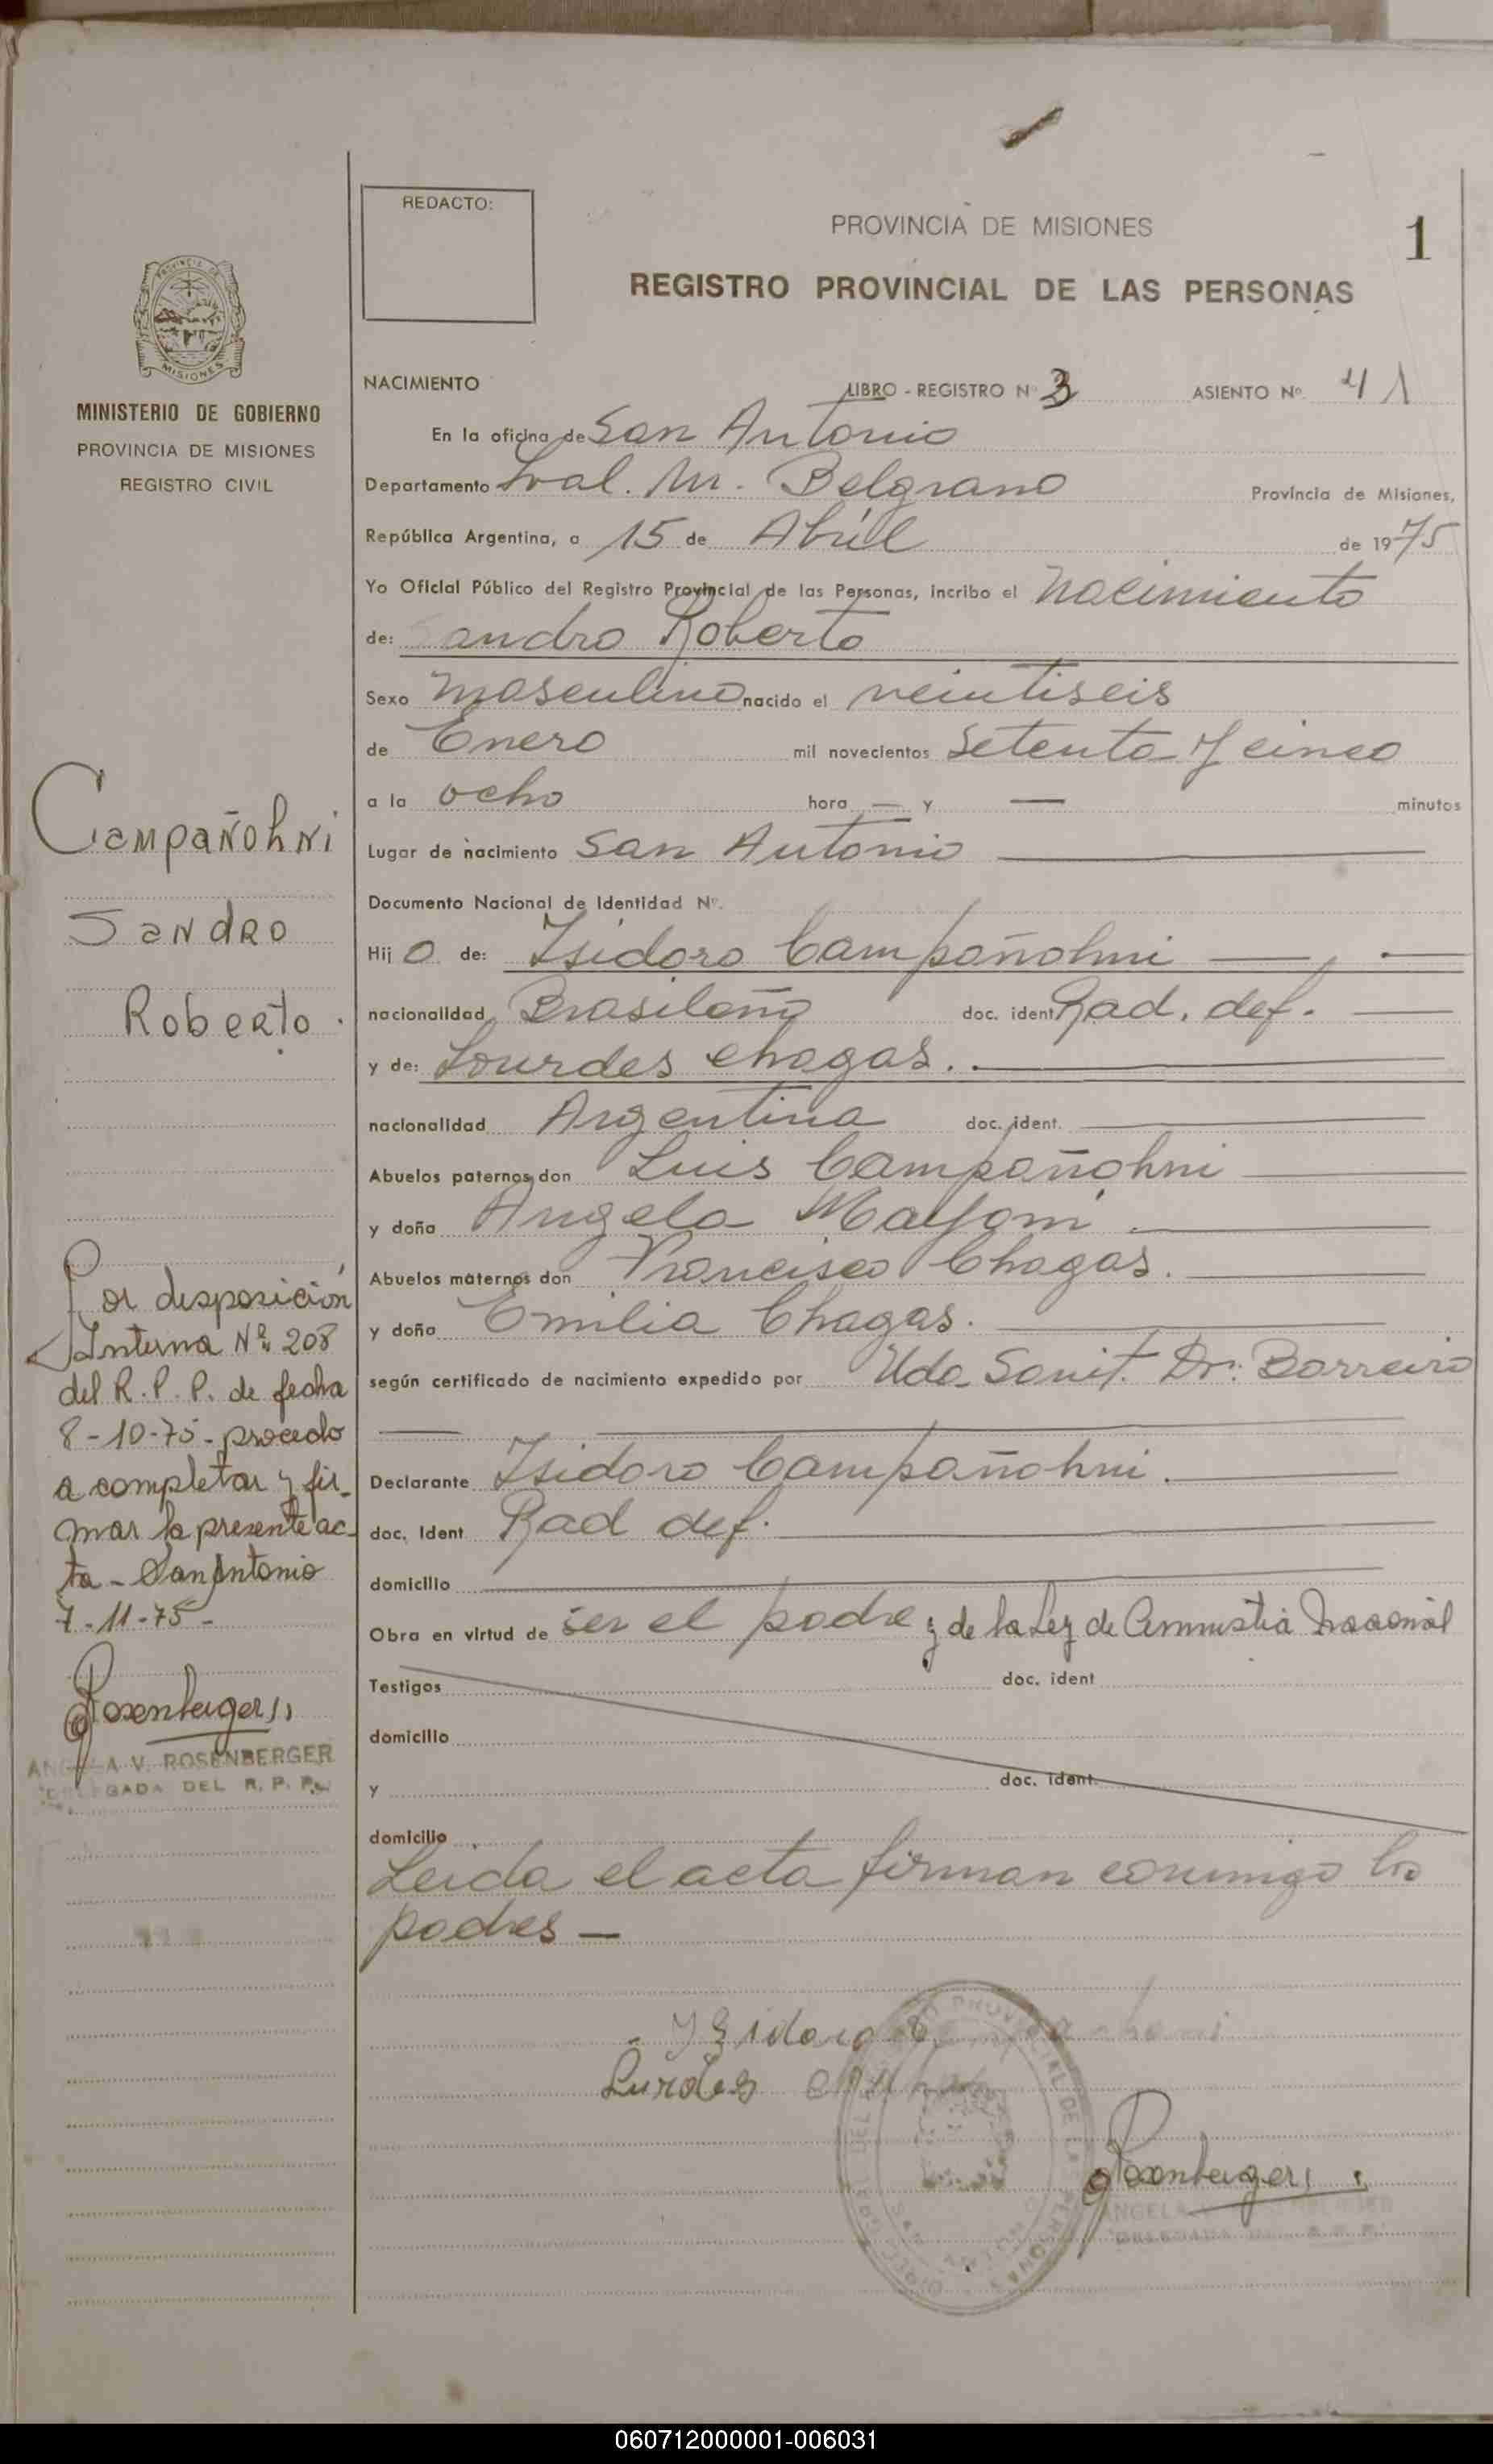 REDACTO:
PROVINCIA DE MISIONES
1
REGISTRO PROVINCIAL DE LAS PERSONAS
PROVINCIA DE
MISIONES
MINISTERIO DE GOBIERNO
PROVINCIA DE MISIONES
REGISTRO CIVIL
NACIMIENTO LIBRO - REGISTRO Nº 3 ASIENTO Nº 41
En la oficina de San Antonio
Departamento Gral. M. Belgrano Provincia de Misiones,
República Argentina, a 15 de Abril de 1975
Yo Oficial Público del Registro Provincial de las Personas, incribo el nacimiento
de: Sandro Roberto
Sexo masculino nacido el veintiseis
de Enero mil novecientos setenta y cinco
a la ocho hora — y — minutos
Lugar de nacimiento San Antonio
Documento Nacional de Identidad Nº
Hijo de: Isidoro Campañohni
nacionalidad Brasileño doc. ident Rad. def.
y de: Lourdes Chagas.
nacionalidad Argentina doc. ident.
Abuelos paternos don Luis Campañohni
y doña Angela
Abuelos maternos don Francisco Chagas.
y doña Emilia Chagas.
según certificado de nacimiento expedido por Uda. Sanit. Dr. Barreiro
Declarante Isidoro Campañohni.
doc. Ident Rad def.
domicilio
Obra en virtud de ser el padre y de la Ley de Amnistia Nacional
Testigos doc. ident
domicilio
y doc. ident.
domicilio
Leida el acta firman conmigo los
padres —
Campañohni
Sandro
Roberto.
Por disposición
Interna Nº 208
del R. P. P. de fecha
8-10-75- procedo
a completar y fir-
mar la presente ac-
ta - San Antonio
7-11-75-
Rosenberger
ANGELA V. ROSENBERGER
DELEGADA DEL R. P. P.
Ysidoro
Lurdes
Rosenberger
ANGELA
060712000001-006031